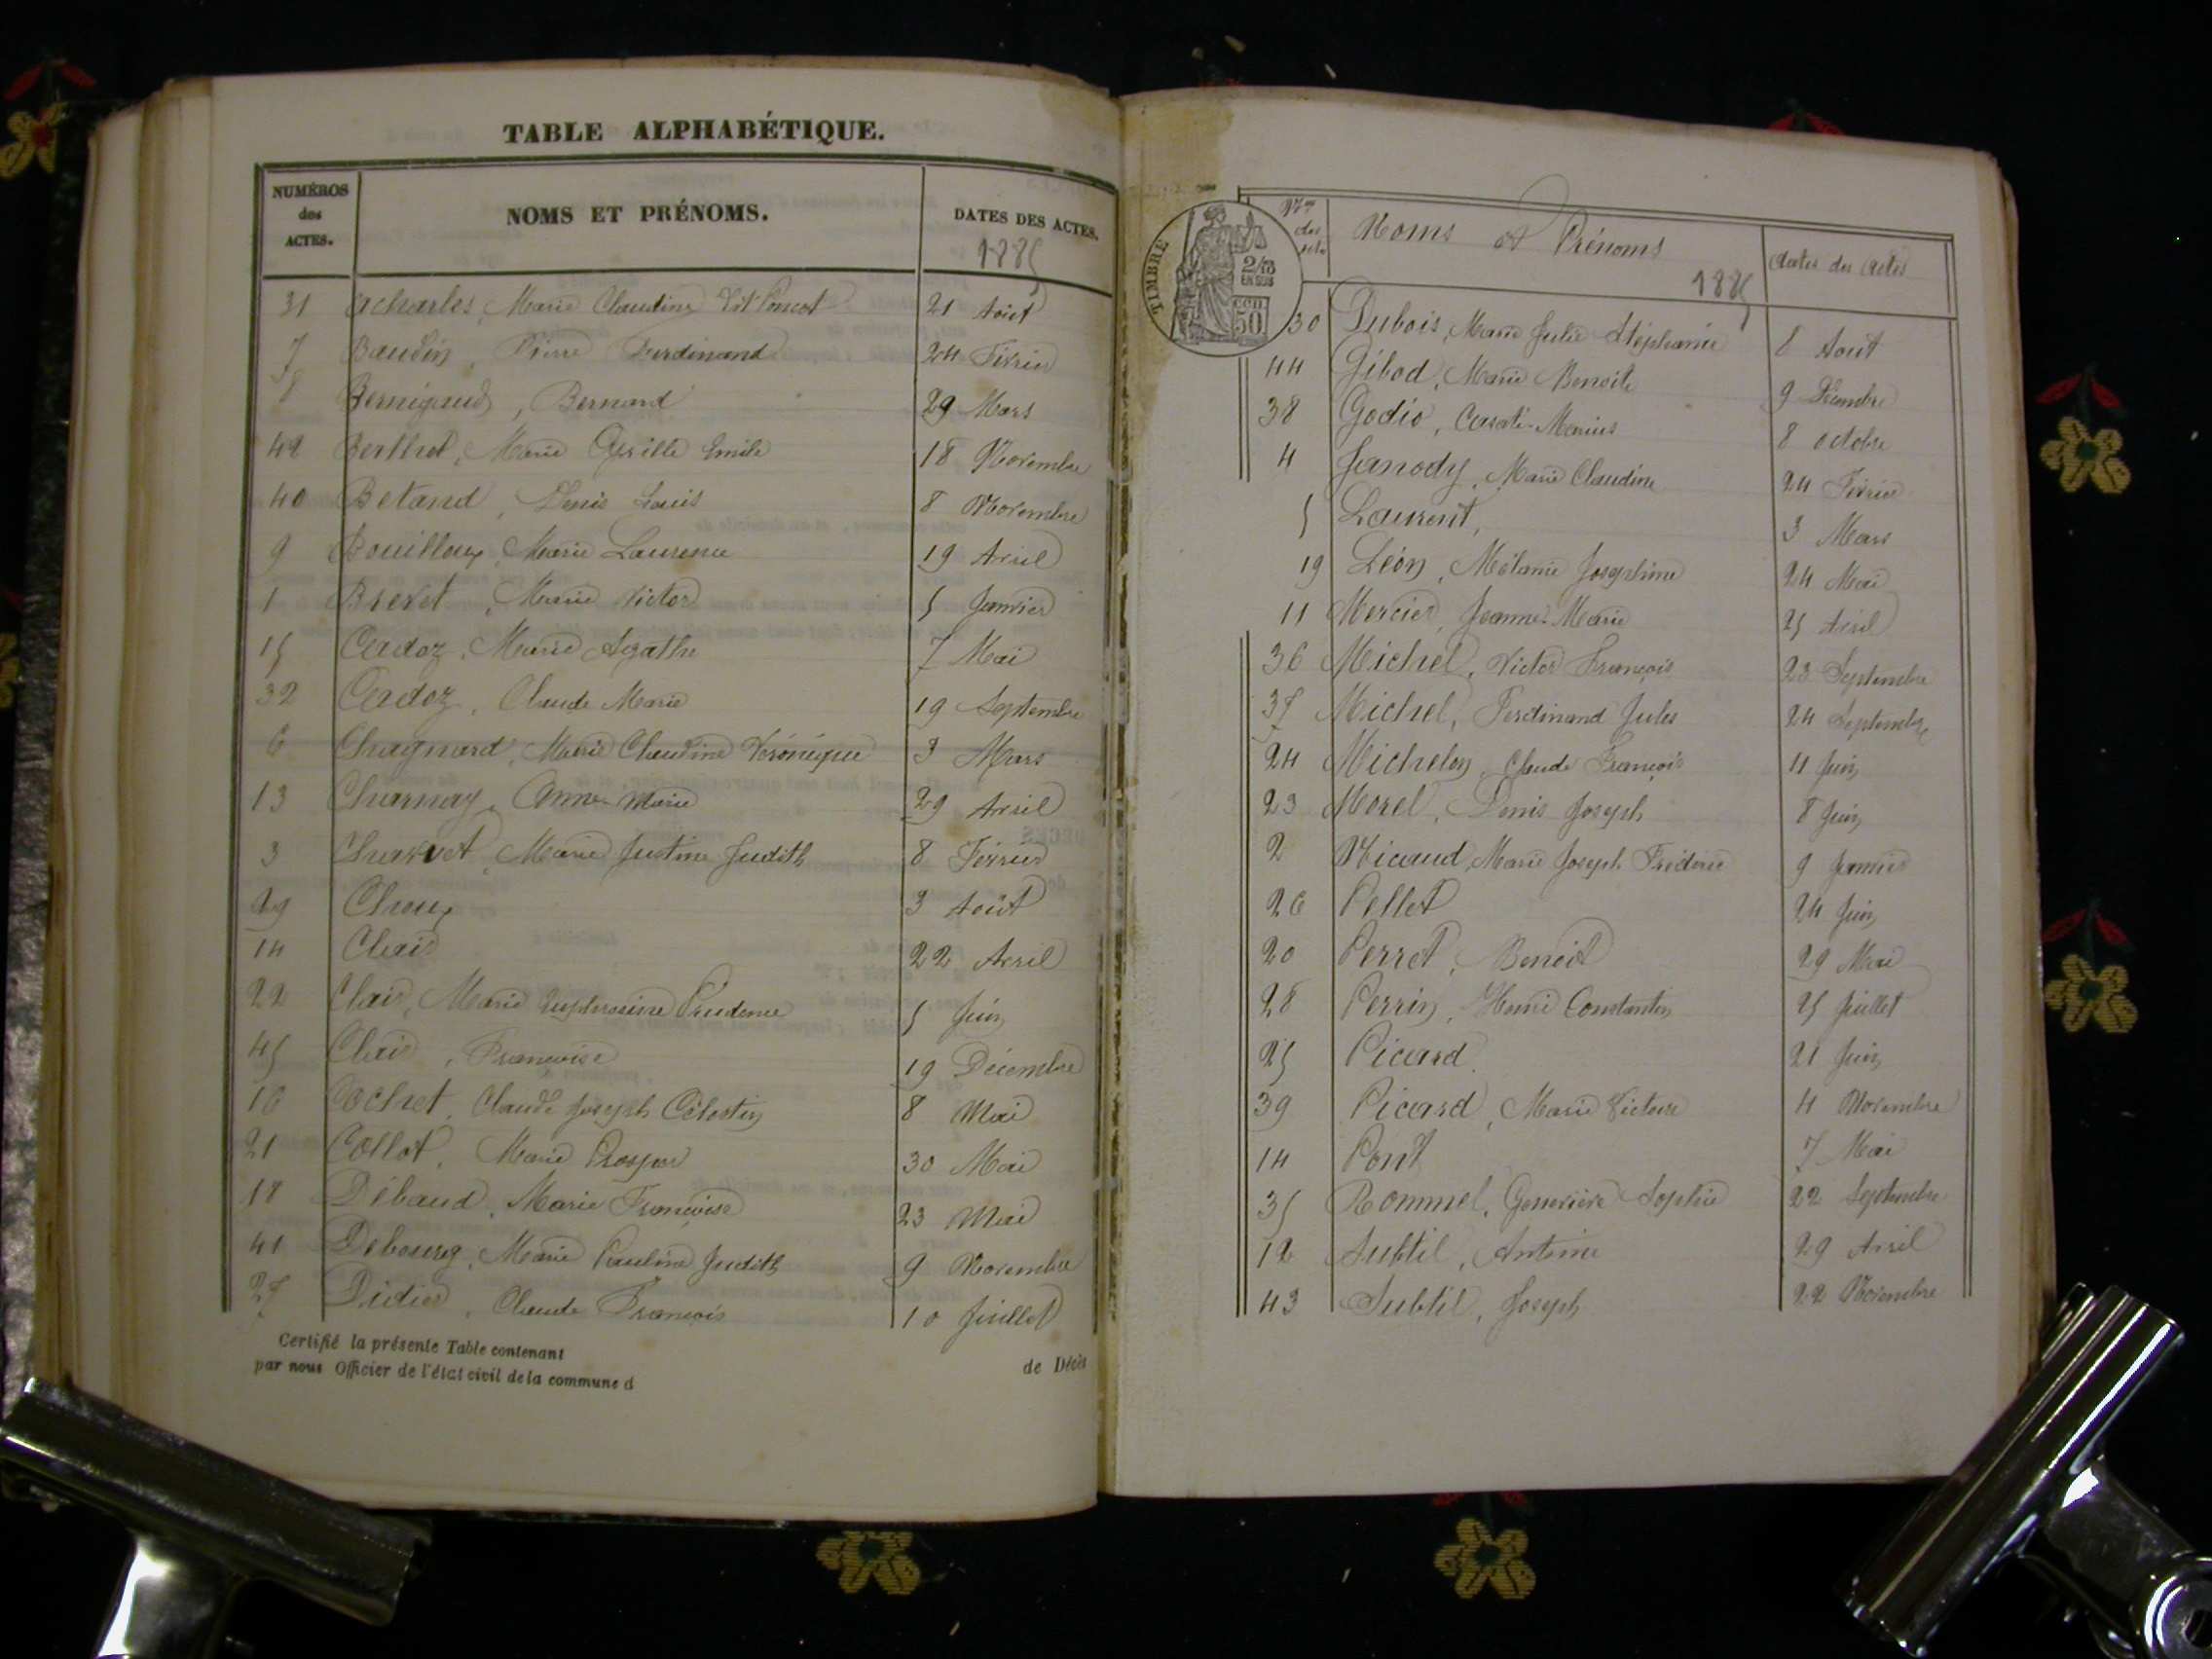 TABLE ALPHABÉTIQUE.
NUMÉROS des ACTES. NOMS ET PRÉNOMS. DATES DES ACTES. 1885
31 Acharles, Marie Claudine 21 Août
7 Baudin, Pierre Ferdinand 24 Février
8 Bernigaud, Bernard 29 Mars
42 Berthet, Marie Emile 18 Novembre
40 Betand, Denis Louis 8 Novembre
9 Bouilloux, Marie Laurence 19 Avril
1 Brevet, Marie Victor 5 Janvier
15 Cadoz, Marie Agathe 7 Mai
32 Cadoz, Claude Marie 19 Septembre
6 Chagnard, Marie Claudine Véronique 3 Mars
13 Charnay, Anne-Marie 29 Avril
3 Charvet, Marie Justine Judith 8 Février
29 Choux 3 Août
14 Clair 22 Avril
22 Clair, Marie Euphrosine Prudence 5 Juin
45 Clair, Françoise 19 Décembre
16 Cochet, Claude Joseph Célestin 8 Mai
21 Collot, Marie Prosper 30 Mai
18 Débaud, Marie Françoise 23 Mai
41 Debourg, Marie Pauline Judith 9 Novembre
27 Didier, Claude François 10 Juillet
Certifié la présente Table contenant de Décès
par nous Officier de l'état civil de la commune d
TIMBRE
2/10 EN SUS
50
Nos des actes Noms et Prénoms 1885 Dates des Actes
30 Dubois, Marie Julie Stéphanie 8 Août
44 Gibod, Marie Benoite 9 Décembre
38 Godio, Marius 8 Octobre
4 Janody, Marie Claudine 24 Février
5 Laurent, 3 Mars
19 Léon, Mélanie Joséphine 24 Mai
11 Mercier, Jeanne-Marie 25 Avril
36 Michel, Victor François 23 Septembre
37 Michel, Ferdinand Jules 24 Septembre
24 Michelon, Claude François 11 Juin
23 Morel, Denis Joseph 8 Juin
2 Nicaud Marie Joseph Frédéric 9 Janvier
26 Pellet 24 Juin
20 Perret, Benoit 29 Mai
28 Perrin, Henri Constantin 25 Juillet
25 Picard 21 Juin
39 Picard, Marie Victoire 4 Novembre
14 Pont 7 Mai
35 Rommel, Geneviève Sophie 22 Septembre
12 Subtil, Antoine 29 Avril
43 Subtil, Joseph 22 Novembre